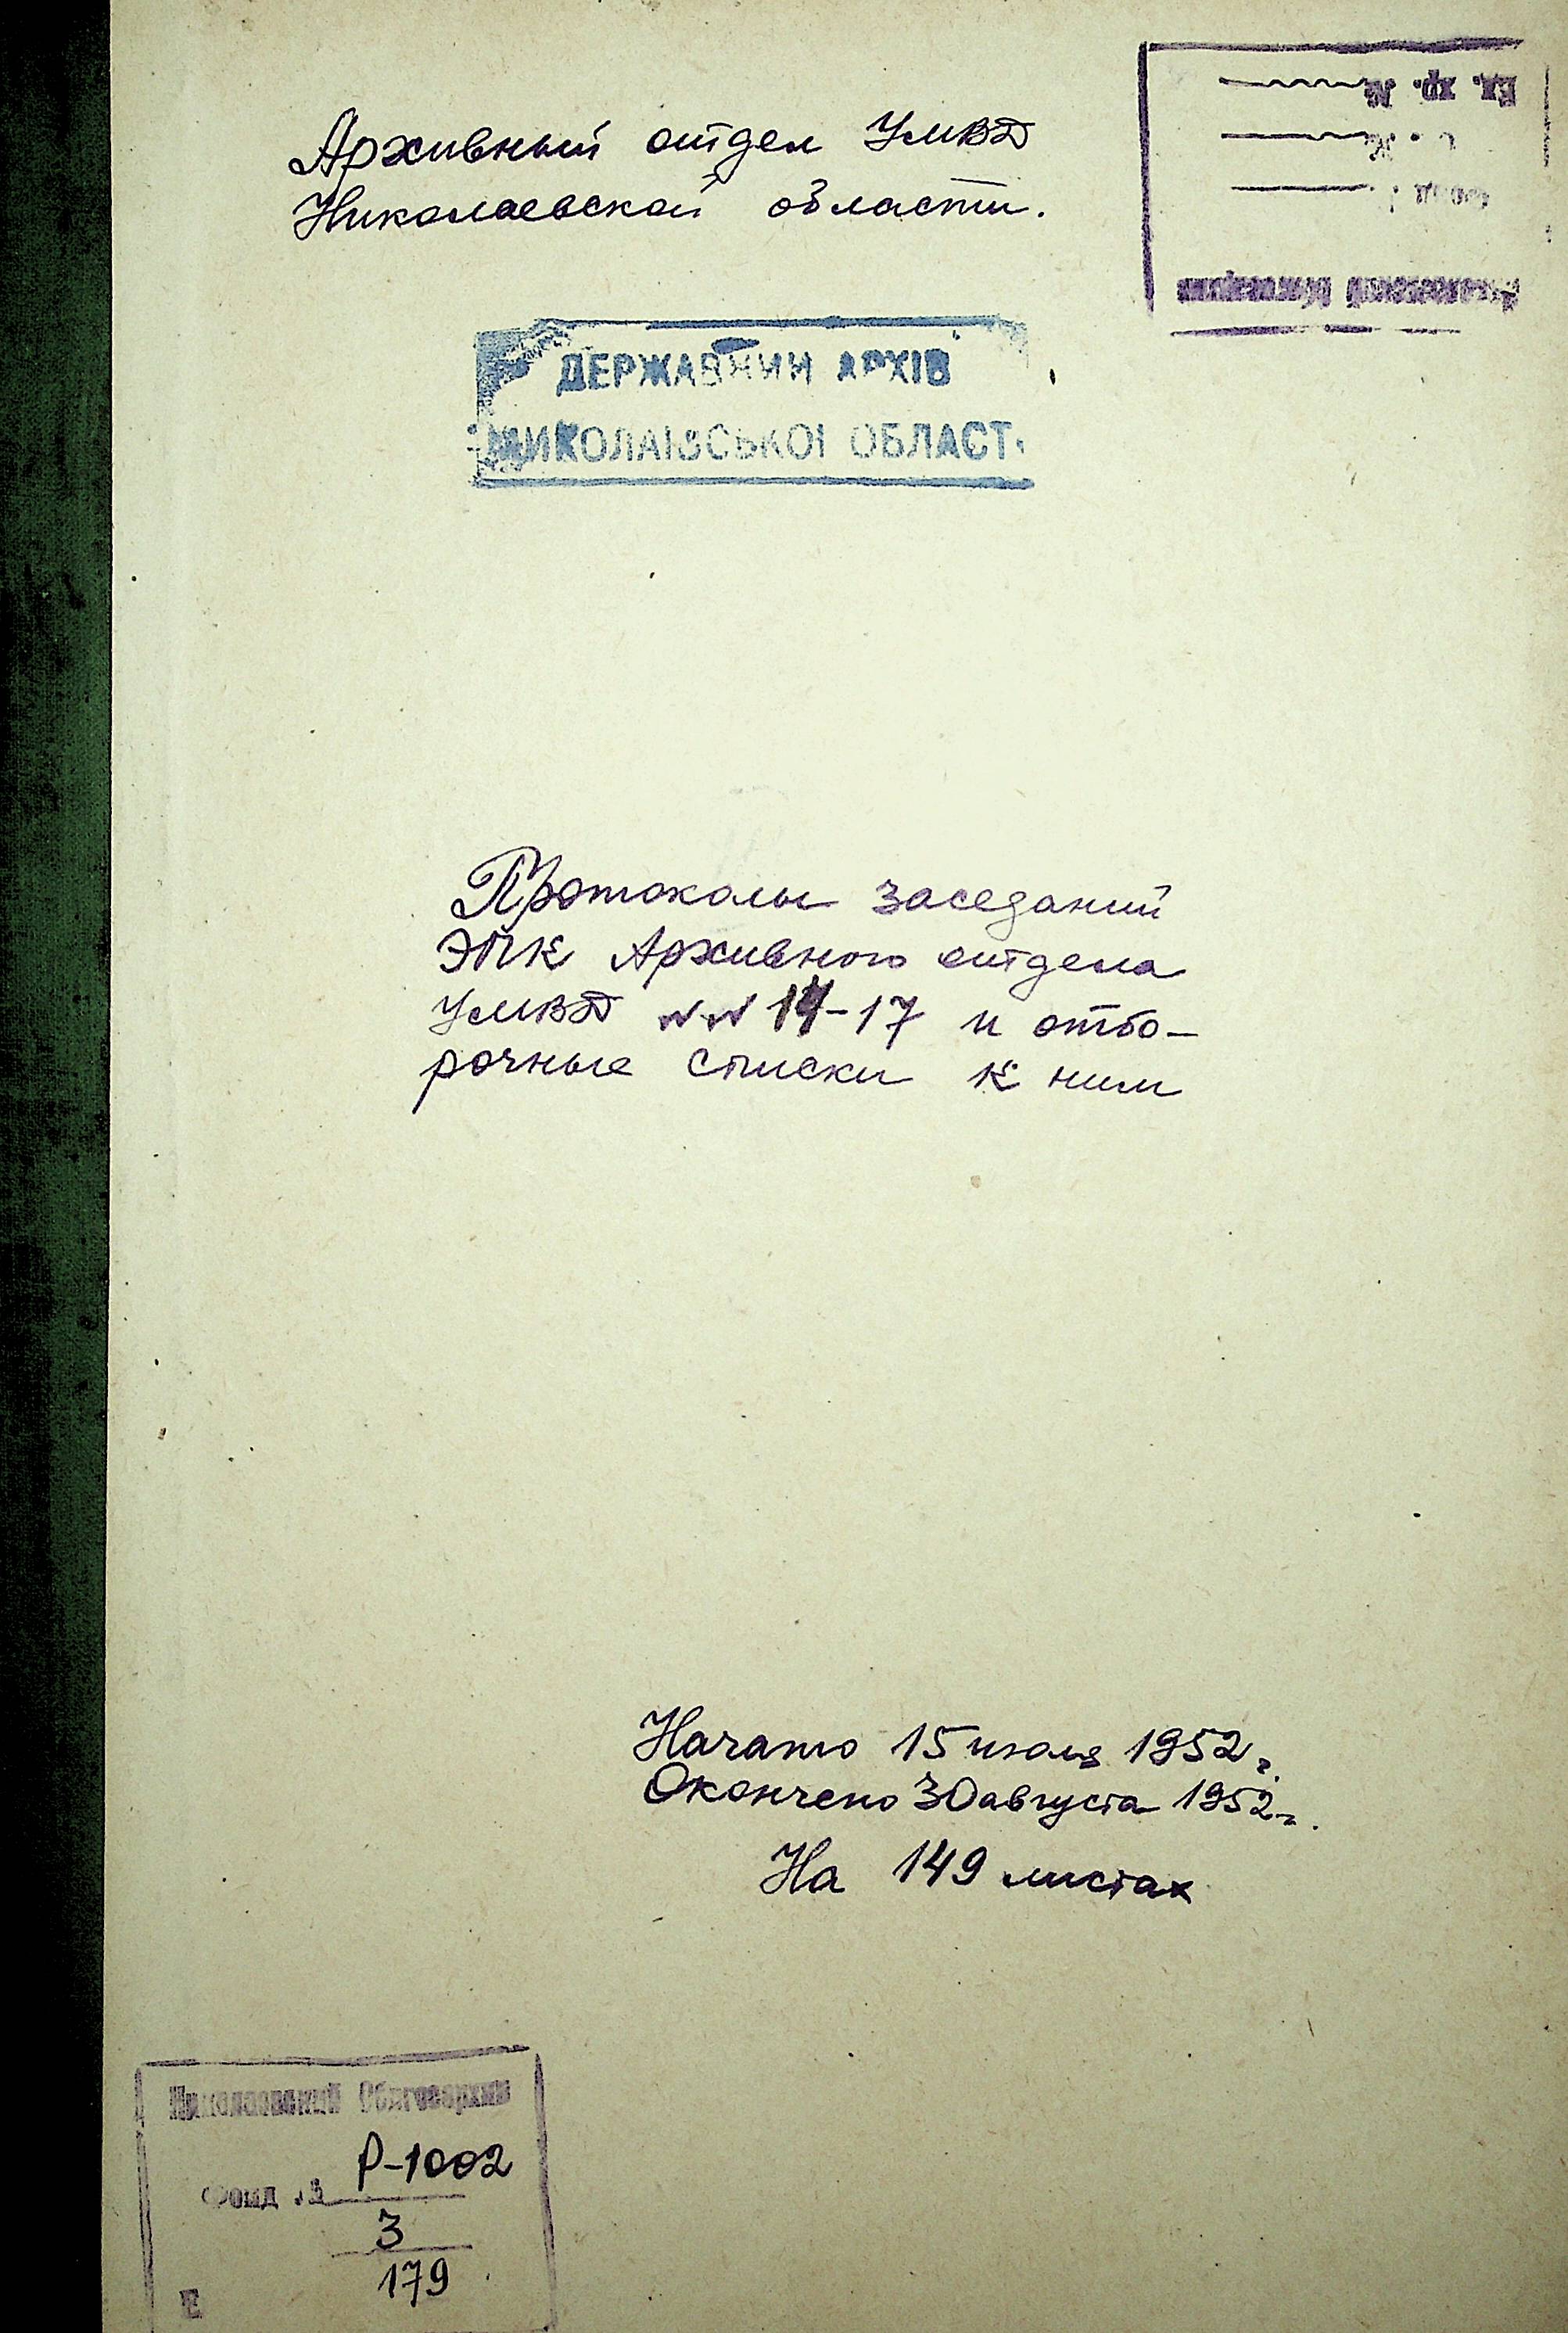 Архивный отдел УМВД
Николаевской области.
ДЕРЖАВНИЙ АРХІВ
МИКОЛАЇВСЬКОЇ ОБЛАСТ
Протоколы заседаний
ЭПК Архивного отдела
УМВД №№ 14-17 и отбо-
рочные списки к ним
Начато 15 июля 1952 г.
Окончено 30 августа 1952 г.
На 149 листах
Николаевский Облгосархив
Фонд № Р-1002
3
179
Ед. хр. №